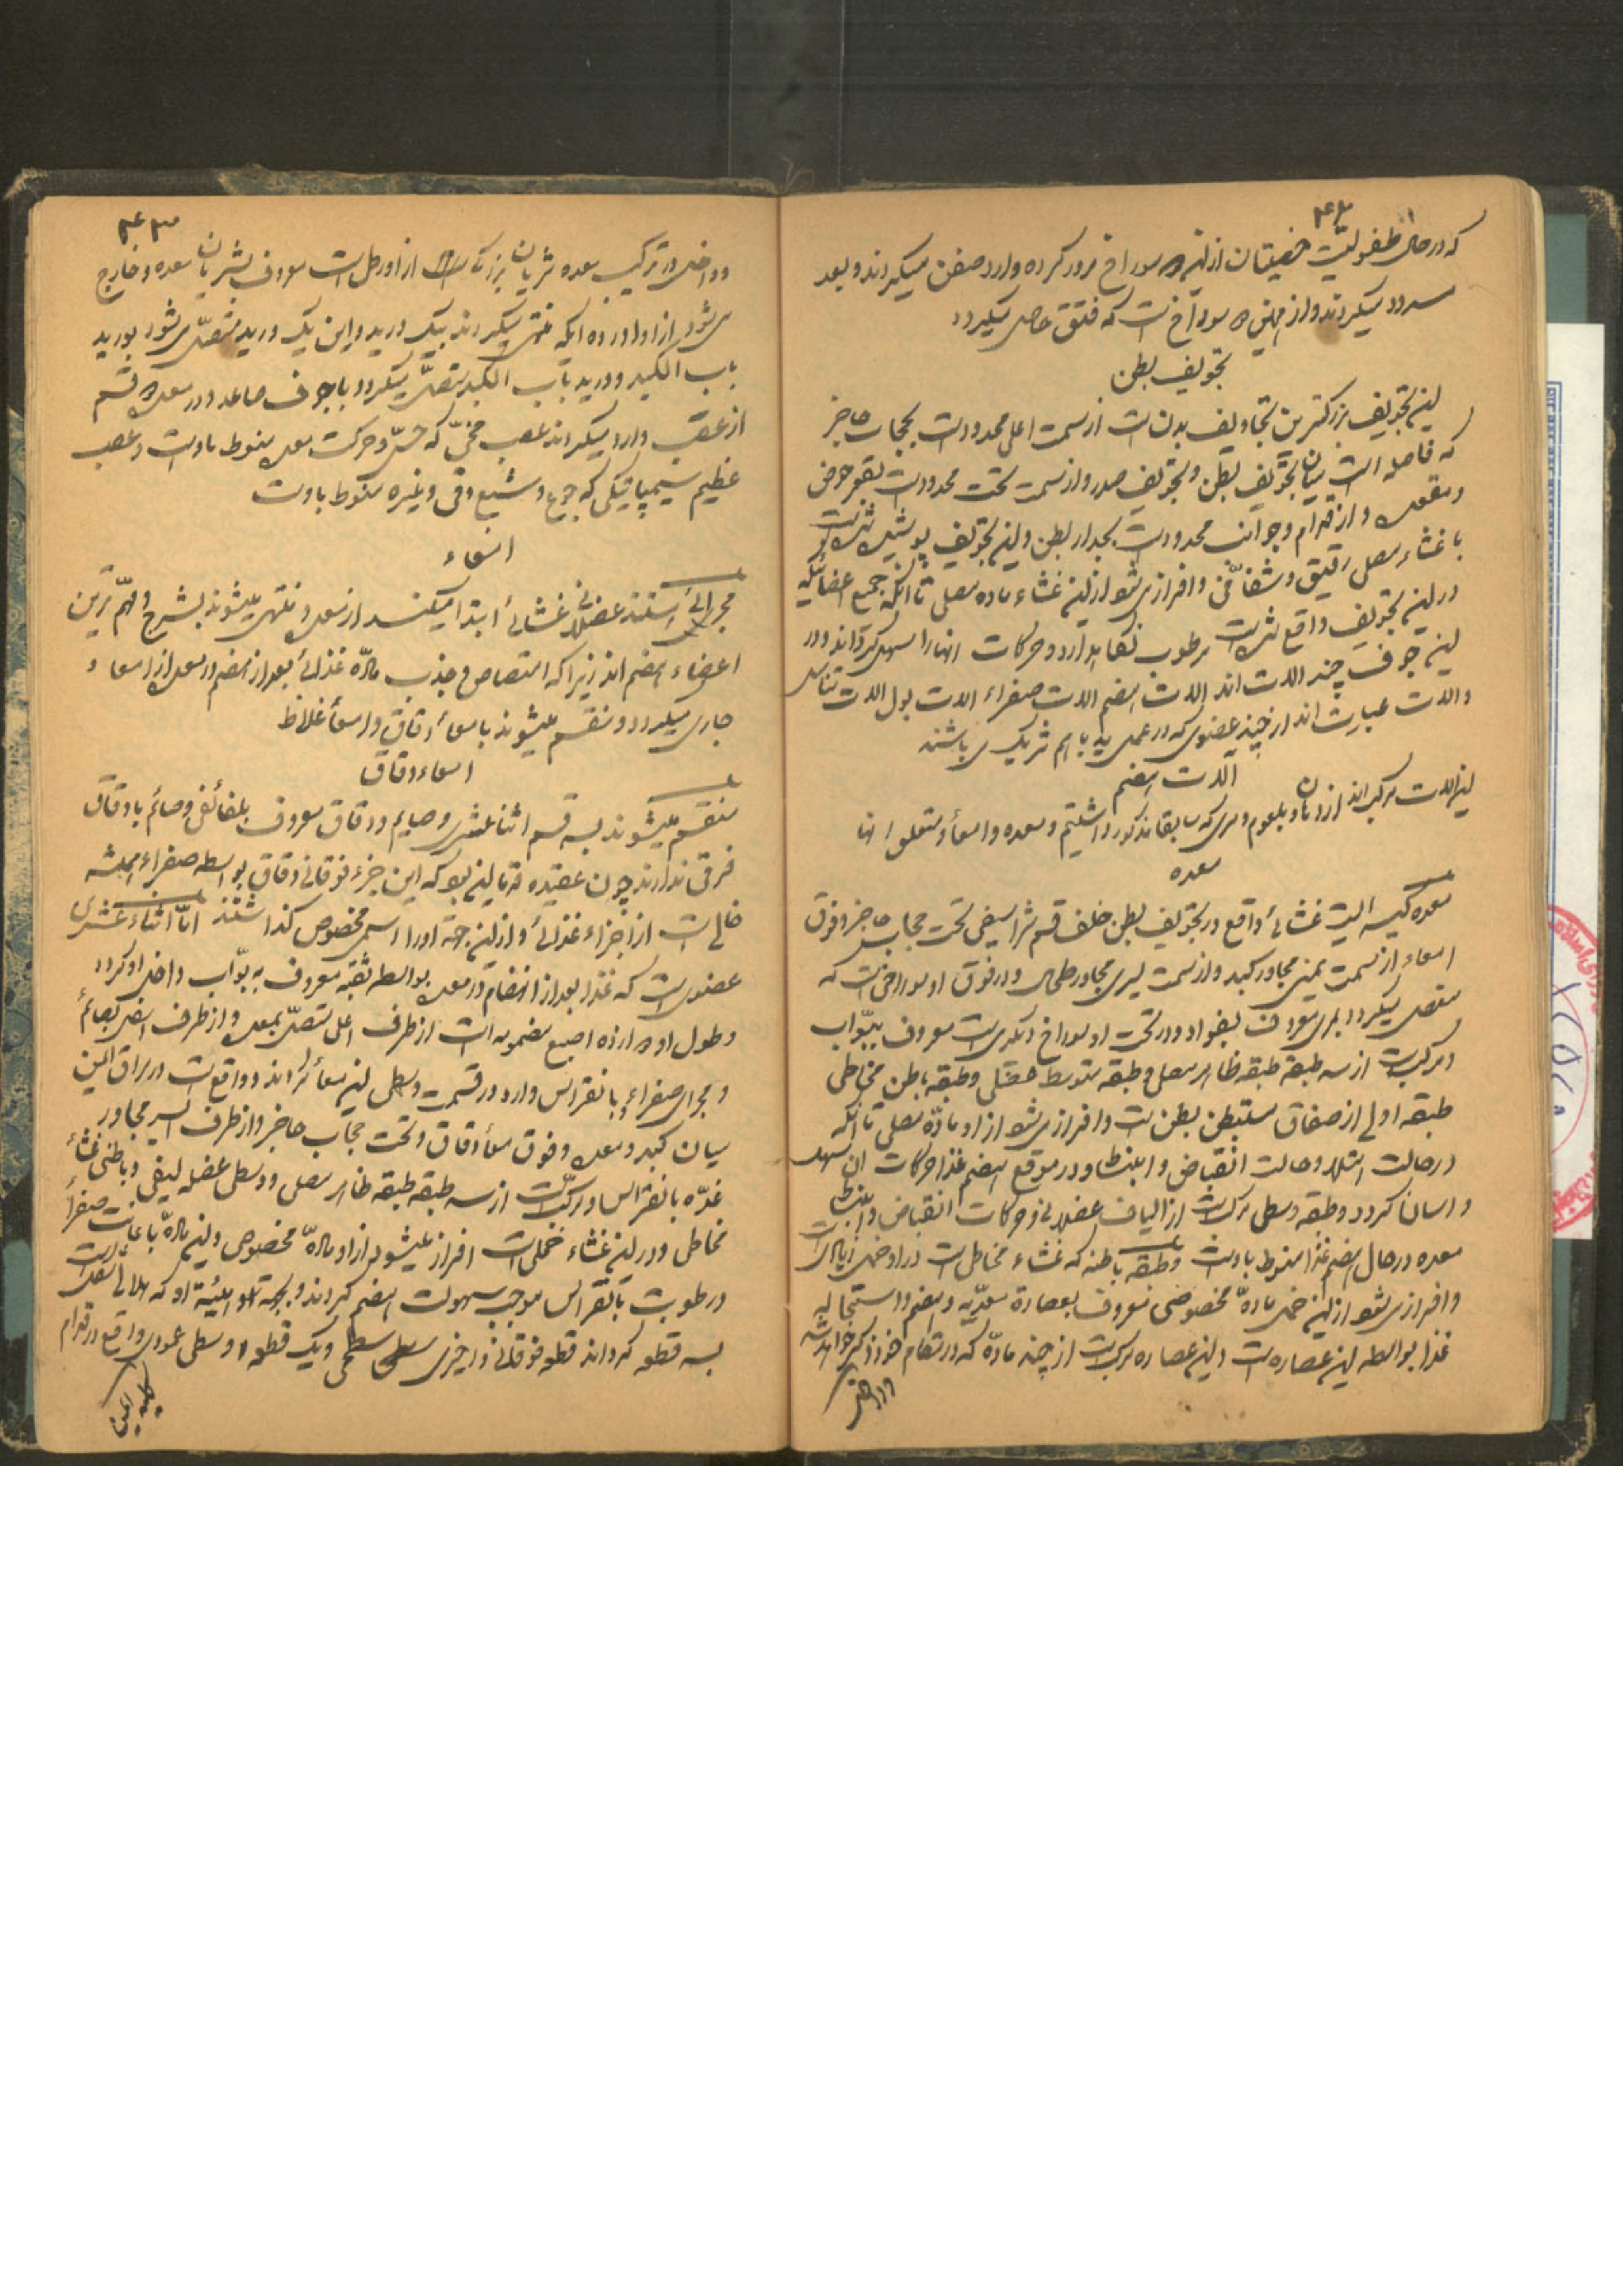 ۴۲
که در حال طفولیت خصیتان از این سوراخ مرور کرده وارد صفن میگردند و بعد
مسدود میگردند و از همین سوراخ است که فتق حاصل میگردد
تجویف بطن
این تجویف بزرگترین تجاویف بدن است از سمت اعلی محدود است بحجاب حاجز
که فاصله است میان تجویف بطن و تجویف صدر و از سمت تحت محدود است بقعر حوض
و مقعد و از قدام و جوانب محدود است بجدار بطن و این تجویف پوشیده شده است
با غشاء مصلی رقیق و شفافی و افراز می‌شود از این غشاء ماده مصلی تا آنکه جمیع اعضائیکه
در این تجویف واقع شده است مرطوب نگاهدارد و حرکات آنها را سهل گرداند و در
این جوف چند آلات اند آلات هضم آلات صفراء آلات بول آلات تناسل
و آلات عبارت اند از چند عضوی که در عمل باهم شریک می باشند
آلات هضم
این آلات مرکب اند از دهان و بلعوم و مری که سابقا مذکور داشتیم و معده و امعاء و متعلق آنها
معده
معده کیسه ایست غشائی واقع در تجویف بطن خلف قسم شراسیفی تحت حجاب حاجز و فوق
امعاء از سمت یمنی مجاور کبد و از سمت یسری مجاور طحال و در فوق او سوراخی است که
متصل میگردد بمری معروف بفواد و در تحت او سوراخ دیگری است معروف ببوّاب
و مرکب است از سه طبقه طبقه ظاهر مصلی و طبقه متوسط عضلی و طبقه باطن مخاطی
طبقه اولی از صفاق مستبطن بطن است و افراز می‌شود از او مادّه مصلی تا آنکه
در حالت امتلاء و حالت انقباض و انبساط و در موقع هضم غذا حرکات آن سهل
و اسان گردد و طبقه وسطی مرکب است از الیاف عضلانی و حرکات انقباض و انبساط
معده در حال هضم غذا منوط باوست و طبقه باطنه که غشاء مخاطی است در او خمل زیادی است
و افراز می‌شود از این خمل مادّه مخصوصی معروف بعصارة معدیّه و هضم و استحاله
غذا بواسطه این عصاره است و این عصاره مرکب است از چند مادّه که در مقام خود ذکر خواهد شد
و داخل
۴۳
و داخل در ترکیب معده شریان بزرگی است از اورطی است معروف بشریان معده و خارج
می‌شود از او اورده ایکه منتهی میگردند بیک ورید و این یک ورید متصل می‌شود بورید
باب الکبد و ورید باب الکبد متصل میگردد باجوف صاعد و در معده دو قسم
از عصب وارد میگردند عصب مخّی که حسّ و حرکت معده منوط باوست و عصب
عظیم سیمپاتیکی که جوع و شبع و قی و غیره منوط باوست
امعاء
مجرائی هستند عضلانی غشائی ابتدا میکنند از معده و منتهی میشوند بشرج و مهمّ ترین
اعضاء هضم اند زیرا که امتصاص و جذب مادّه غذائی بعد از هضم در معده از امعاء
جاری میگردد و منقسم میشوند بامعاء دقاق و امعاء غلاظ
امعاء دقاق
منقسم میشوند بسه قسم اثنا عشری و صایم و دقاق معروف بلفائفی و صائم با دقاق
فرقی ندارند چون عقیده قدما این بود که این جزء فوقانی دقاق بواسطه صفراء همیشه
خالی است از اجزاء غذائی و از این جهة او را اسمی مخصوص گذاشتند امّا اثناء عشری
عضوی است که غذا بعد از انهضام در معده بواسطه ثقبه معروف به بوّاب داخل او گردد
و طول او دوازده اصبع مضمومه است از طرف اعلی متصل بمعده و از طرف اسفل بصائم
و مجرای صفراء با نقراس وارد در قسمت وسطی این معاء شده اند و واقع است در مراق ایمن
میان کبد و معده و فوق معاء دقاق و تحت حجاب حاجز و از طرف ایسر مجاور
غدّه بانقراس و مرکّب است از سه طبقه طبقه ظاهر مصلی و وسطی عضله لیفی و باطنی غشاء
مخاطی و در این غشاء خملی است افراز میشود از او مادّه مخصوص و این مادّه باعانت صفراء
و رطوبت بانقراس موجب سهولت هضم گردند و بجهة هیئة او که هلالی شکل است
بسه قطعه کرده اند قطعه فوقانی و اخری سطحی و یک قطعه وسطی عمودی واقع در قدام
کلیه ایمن